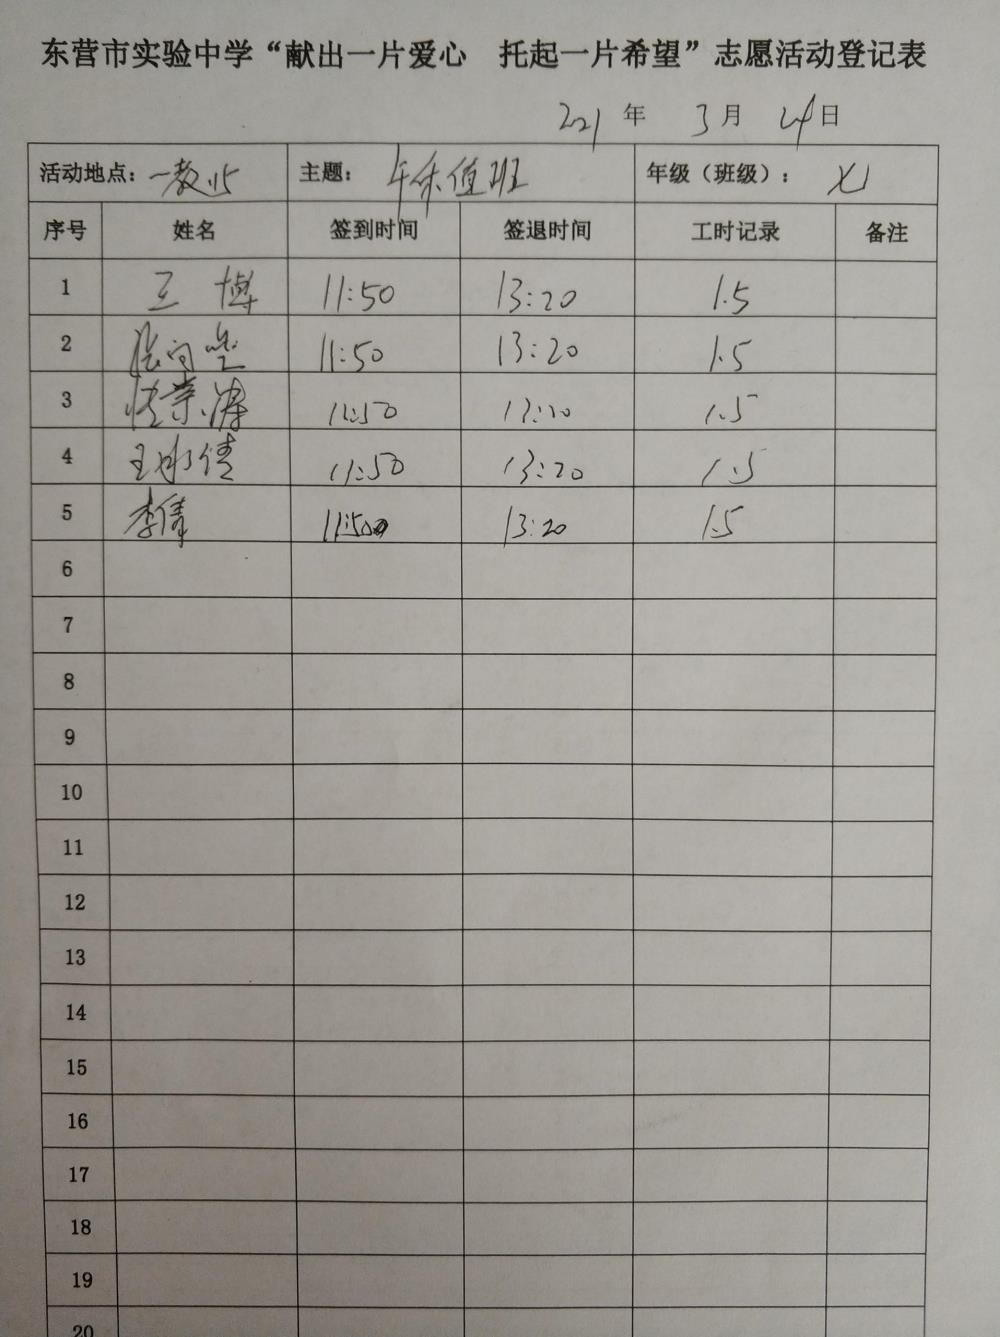 东营市实验中学“献出一片爱心 托起一片希望”志愿活动登记表
2021 年 3 月 24 日
活动地点： 一教北 主题： 午休值班 年级（班级）： 七
序号 姓名 签到时间 签退时间 工时记录 备注
1 王博 11:50 13:20 1.5
2 11:50 13:20 1.5
3 11:50 13:20 1.5
4 王冰倩 11:50 13:20 1.5
5 李倩 11:50 13:20 1.5
6
7
8
9
10
11
12
13
14
15
16
17
18
19
20